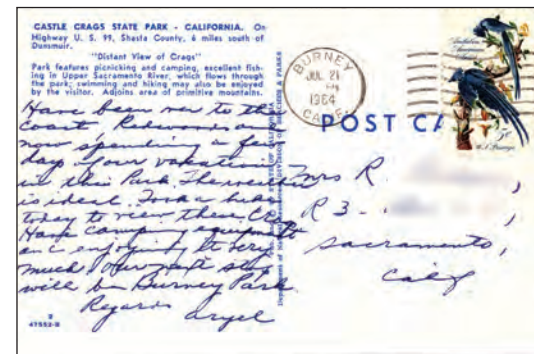 CASTLE CRAGS STATE PARK - CALIFORNIA. On
Highway U. S. 99, Shasta County, 6 miles south of
Dunsmuir.
"Distant View of Crags"
Park features picnicking and camping, excellent fish-
ing in Upper Sacramento River, which flows through
the park; swimming and hiking may also be enjoyed
by the visitor. Adjoins area of primitive mountains.
Have been over to the
coast, Redwoods and
now spending a few
days of our vacation
in this Park. The weather
is ideal. Took a hike
today to view these Crags
Have camping equipment
and enjoying it very
much. Our next stop
will be Burney Park.
Regards
47552-B
BURNEY
JUL 21
PM
1964
CALIF.
POST CA
5c
U.S. Postage
Mrs R
R 3 -
Sacramento,
Calif